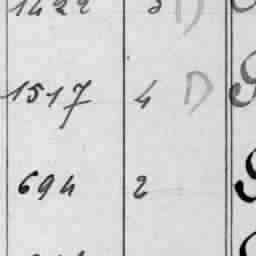 1422 3 D
1517 4 D
694 2